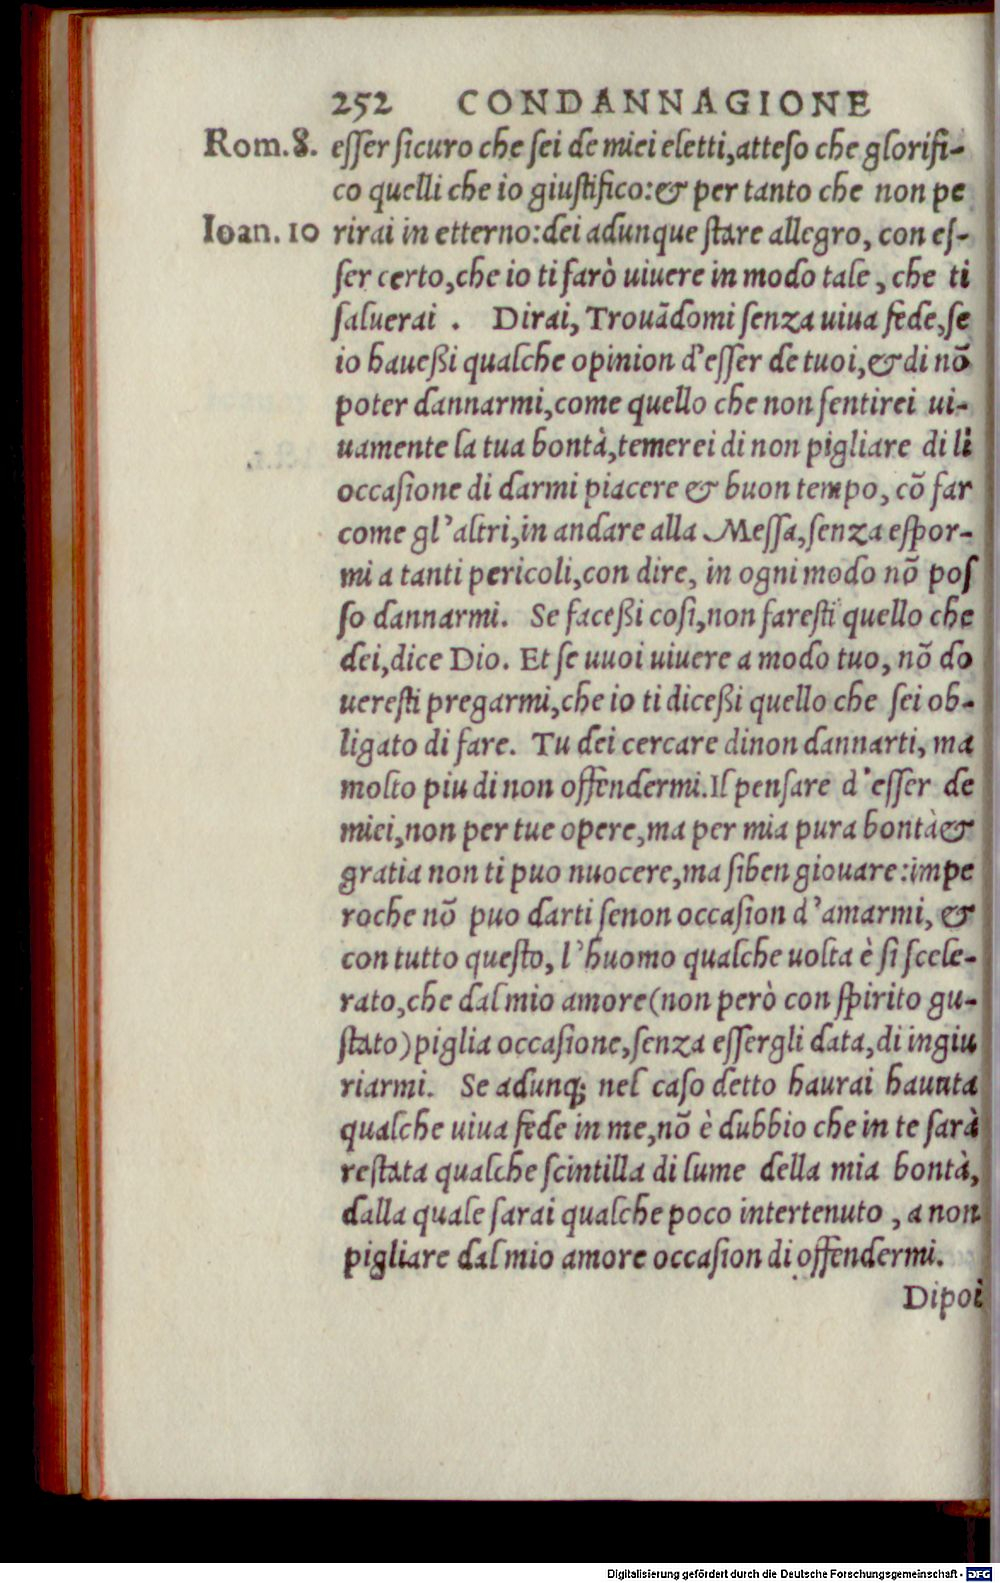 252 CONDANNAGIONE
Rom.8. esser sicuro che sei de miei eletti,atteso che glorifi-
co quelli che io giustifico:& per tanto che non pe
Ioan. 10 rirai in etterno:dei adunque stare allegro, con es-
ser certo,che io ti farò uiuere in modo tale, che ti
saluerai . Dirai, Trouādomi senza uiua fede,se
io haueßi qualche opinion d'esser de tuoi,& di nō
poter dannarmi,come quello che non sentirei ui-
uamente la tua bontà,temerei di non pigliare di lì
occasione di darmi piacere & buon tempo, cō far
come gl'altri,in andare alla Messa,senza espor-
mi a tanti pericoli,con dire, in ogni modo nō pos
so dannarmi. Se faceßi cosi,non faresti quello che
dei,dice Dio. Et se uuoi uiuere a modo tuo, nō do
ueresti pregarmi,che io ti diceßi quello che sei ob-
ligato di fare. Tu dei cercare dinon dannarti, ma
molto piu di non offendermi.Il pensare d'esser de
miei,non per tue opere,ma per mia pura bontà&
gratia non ti puo nuocere,ma siben giouare:impe
roche nō puo darti senon occasion d'amarmi, &
con tutto questo, l'huomo qualche uolta è si scele-
rato,che dal mio amore(non però con spirito gu-
stato)piglia occasione,senza essergli data,di ingiu
riarmi. Se adunq; nel caso detto haurai hauuta
qualche uiua fede in me,nō è dubbio che in te sarà
restata qualche scintilla di lume della mia bontà,
dalla quale sarai qualche poco intertenuto , a non
pigliare dal mio amore occasion di offendermi.
Dipoi
Digitalisierung gefördert durch die Deutsche Forschungsgemeinschaft - DFG